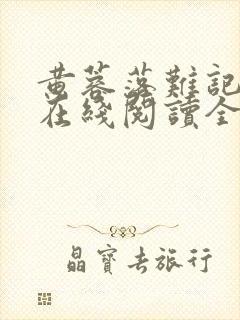 黄蓉落難記
在綫閱讀全
晶寶去旅行